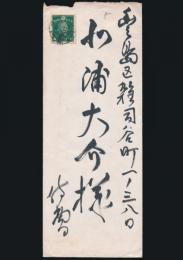 豊島区雑司谷町一ノ三八〇
松浦大介様